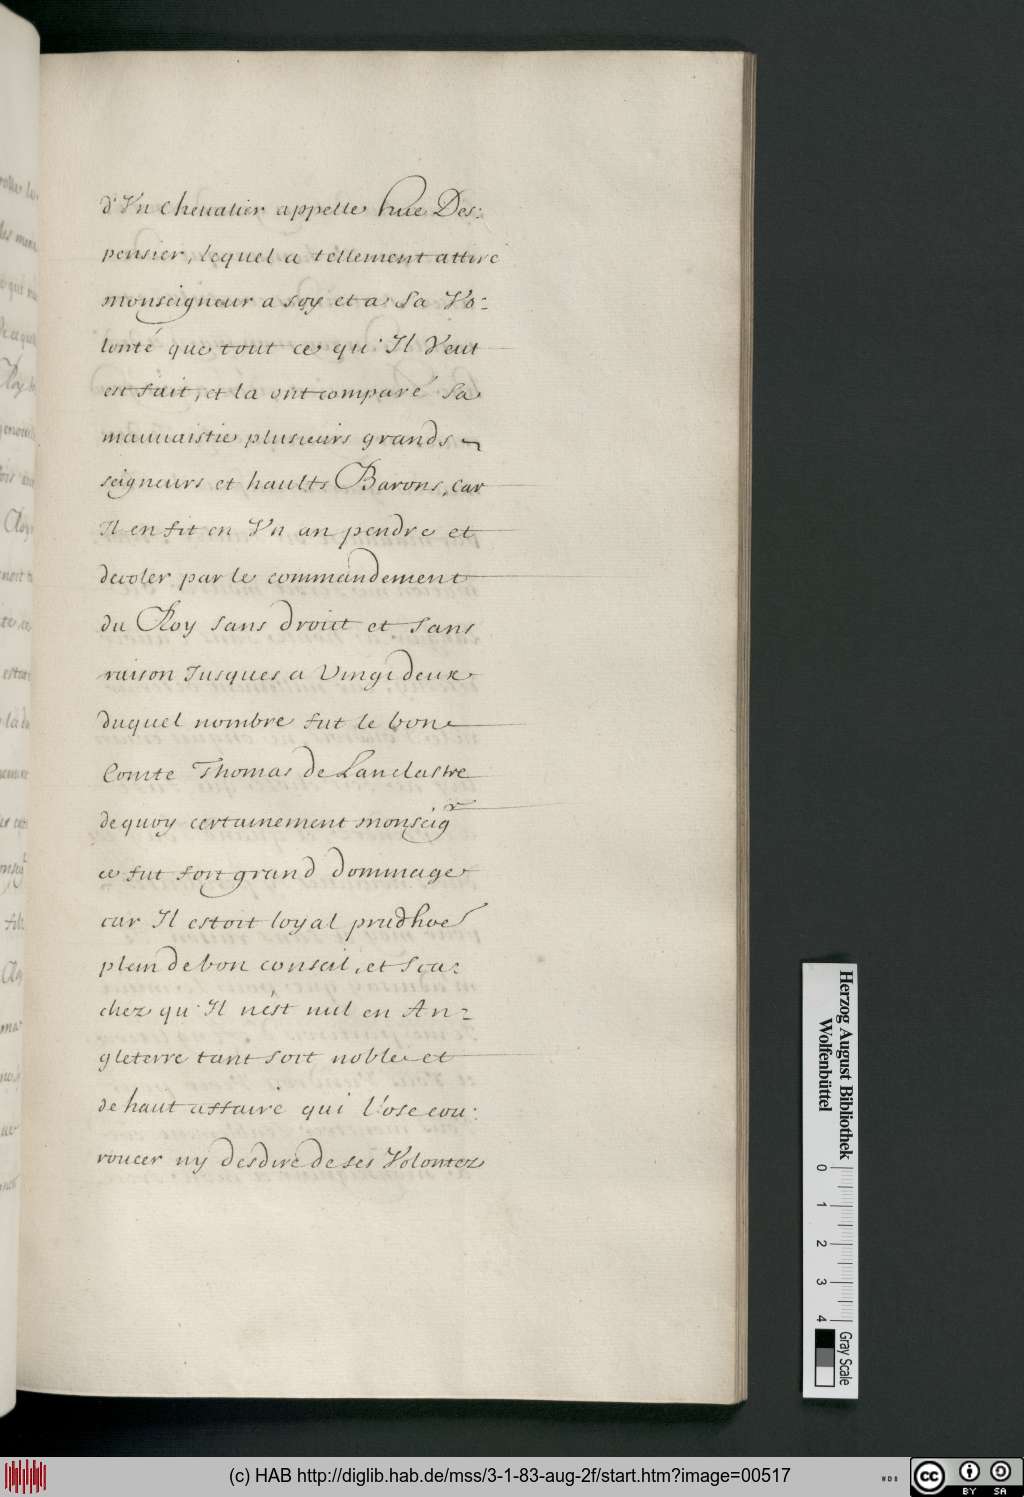 d'Vn Chevalier appelle hue Des:
pensier, lequel a tellement attire
monseigneur a soy et a sa Vo:
lonté que tout ce qu'Il Veut
est fait, et la ont comparé sa
mauuaistie plusieurs grands
seigneurs et haults Barons, car
Il en fit en Vn an pendre et
decoler par le commandement
du Roy sans droict et sans
raison Jusques a Vingt deux
duquel nombre fut le bon
Comte Thomas de Lanclastre
de quoy certainement monseigr
ce fut fort grand dommage
car Il estoit loyal prudhoe
plein de bon conseil, et sca:
chez qu'Il n'est nul en An:
gleterre tant soit noble et
de haut affaire qui l'ose cou:
roucer ny desdire de ses Volontez
Herzog August Bibliothek
Wolfenbüttel
0 1 2 3 4
Gray Scale
(c) HAB http://diglib.hab.de/mss/3-1-83-aug-2f/start.htm?image=00517
cc BY SA